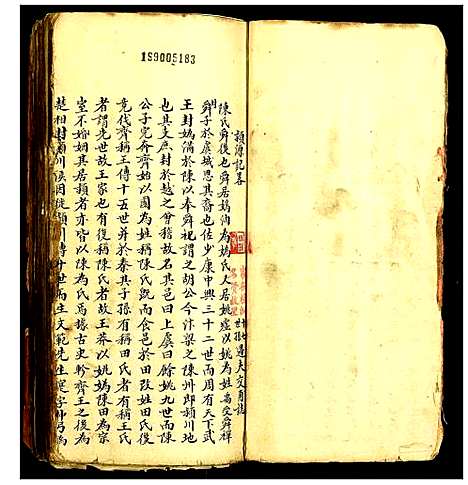 189005183
潁源記畧
世孫邁夫文甫誌
陳氏舜後也舜居媯汭為媯氏人居姚虛以姚為姓堯受舜禪
舜子於虞城思其裔也佐少康中興三十二世而周有天下武
王封媯滿於陳以奉舜祀謂之胡公今汴梁之陳州郎潁川地
也其支庶封於越之會稽故名其邑曰上虞曰餘姚九世而陳
公子完奔齊始以國為姓稱陳氏旣而食邑於田改姓田氏後
竟伐齊稱王傳十五世并於秦其子孫有稱田氏者有稱王氏
者謂先世故王家也有復稱陳氏者故王莽以姚媯陳田為宗
室不婚姻其居潁者亦皆以陳為氏焉據古史軫齊王之後為
楚相封潁川侯因徙潁川傳廿世而生文範先生寔字仲弓為